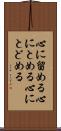 心に留める心
にとめる心に
とどめる